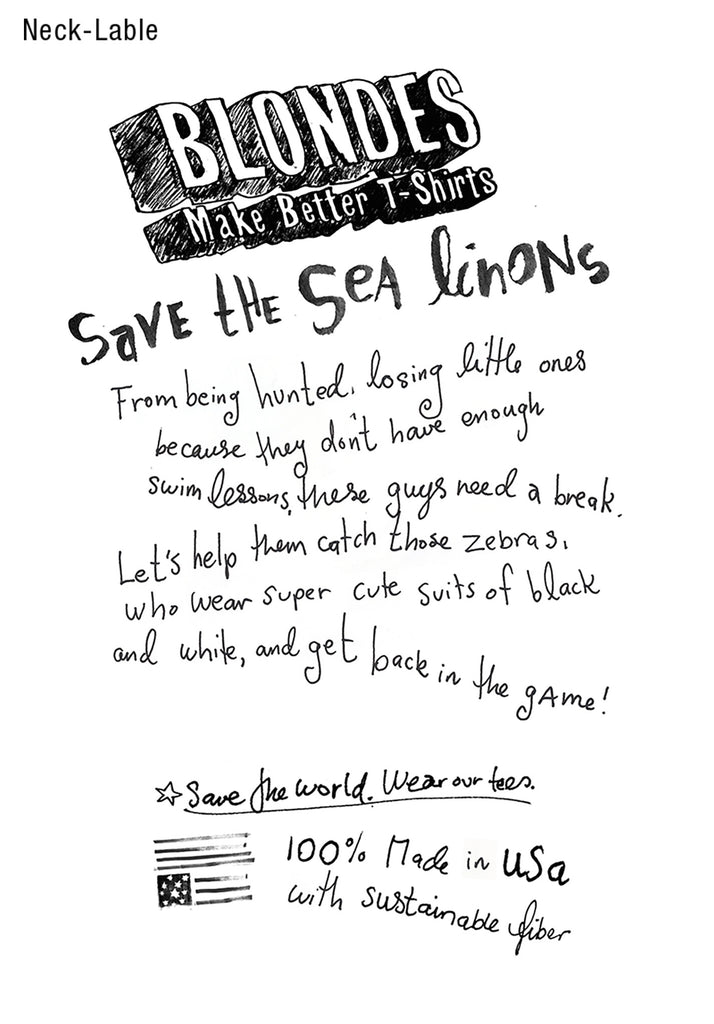 Neck-Lable
BLONDES
Make Better T-Shirts
Save the Sea linons
From being hunted, losing little ones
because they don't have enough
swim lessons, these guys need a break.
Let's help them catch those zebras,
who wear super cute suits of black
and white, and get back in the game!
Save the world. Wear our tees.
100% Made in USa
with sustainable fiber